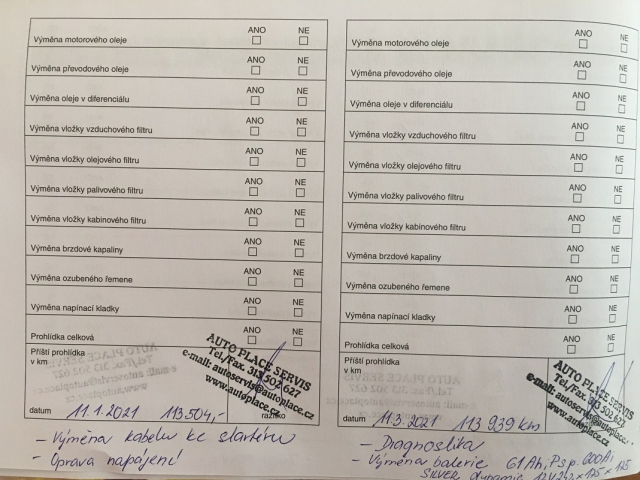 ANO NE
Výměna motorového oleje
ANO NE
Výměna převodového oleje
ANO NE
Výměna oleje v diferenciálu
ANO NE
Výměna vložky vzduchového filtru
ANO NE
Výměna vložky olejového filtru
ANO NE
Výměna vložky palivového filtru
ANO NE
Výměna vložky kabinového filtru
ANO NE
Výměna brzdové kapaliny
ANO NE
Výměna ozubeného řemene
ANO NE
Výměna napínací kladky
ANO NE
Prohlídka celková
Příští prohlídka
v km
AUTO PLACE SERVIS
Tel./Fax. 313 502 627
e-mail: autoservis@autoplace.cz
www.autoplace.cz
datum 11.1.2021 113.504,- razítko
- Výměna kabelu ke startéru
- Oprava napájení
ANO NE
Výměna motorového oleje
ANO NE
Výměna převodového oleje
ANO NE
Výměna oleje v diferenciálu
ANO NE
Výměna vložky vzduchového filtru
ANO NE
Výměna vložky olejového filtru
ANO NE
Výměna vložky palivového filtru
ANO NE
Výměna vložky kabinového filtru
ANO NE
Výměna brzdové kapaliny
ANO NE
Výměna ozubeného řemene
ANO NE
Výměna napínací kladky
ANO NE
Prohlídka celková
Příští prohlídka
v km
AUTO PLACE SERVIS
Tel./Fax. 313 502 627
e-mail: autoservis@autoplace.cz
www.autoplace.cz
datum 11.3.2021 113 939 km
- Diagnostika
- Výměna baterie 61Ah,
SILVER dynamic